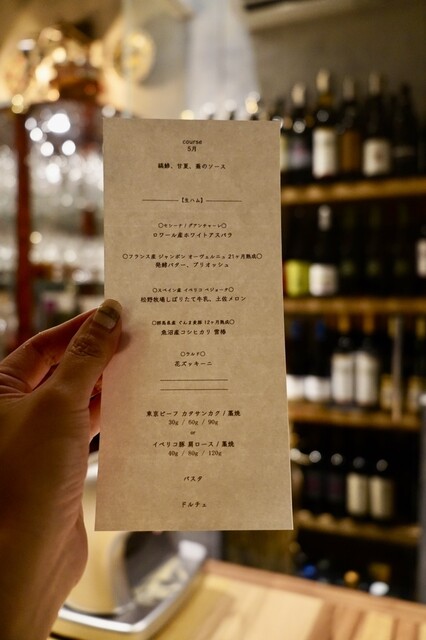 course
5月
縞鯵、甘夏、蕪のソース
【生ハム】
○モシーナ/グアンチャーレ○
ロワール産ホワイトアスパラ
○フランス産 ジャンボン オーヴェルニュ 21ヶ月熟成○
発酵バター、ブリオッシュ
○スペイン産 イベリコ ベジョータ○
松野牧場しぼりたて牛乳、土佐メロン
○群馬県産 ぐんま麦豚 12ヶ月熟成○
魚沼産コシヒカリ 雲椿
○ラルド○
花ズッキーニ
東京ビーフ カタサンカク / 藁焼
30g / 60g / 90g
or
イベリコ豚 肩ロース / 藁焼
40g / 80g / 120g
パスタ
ドルチェ